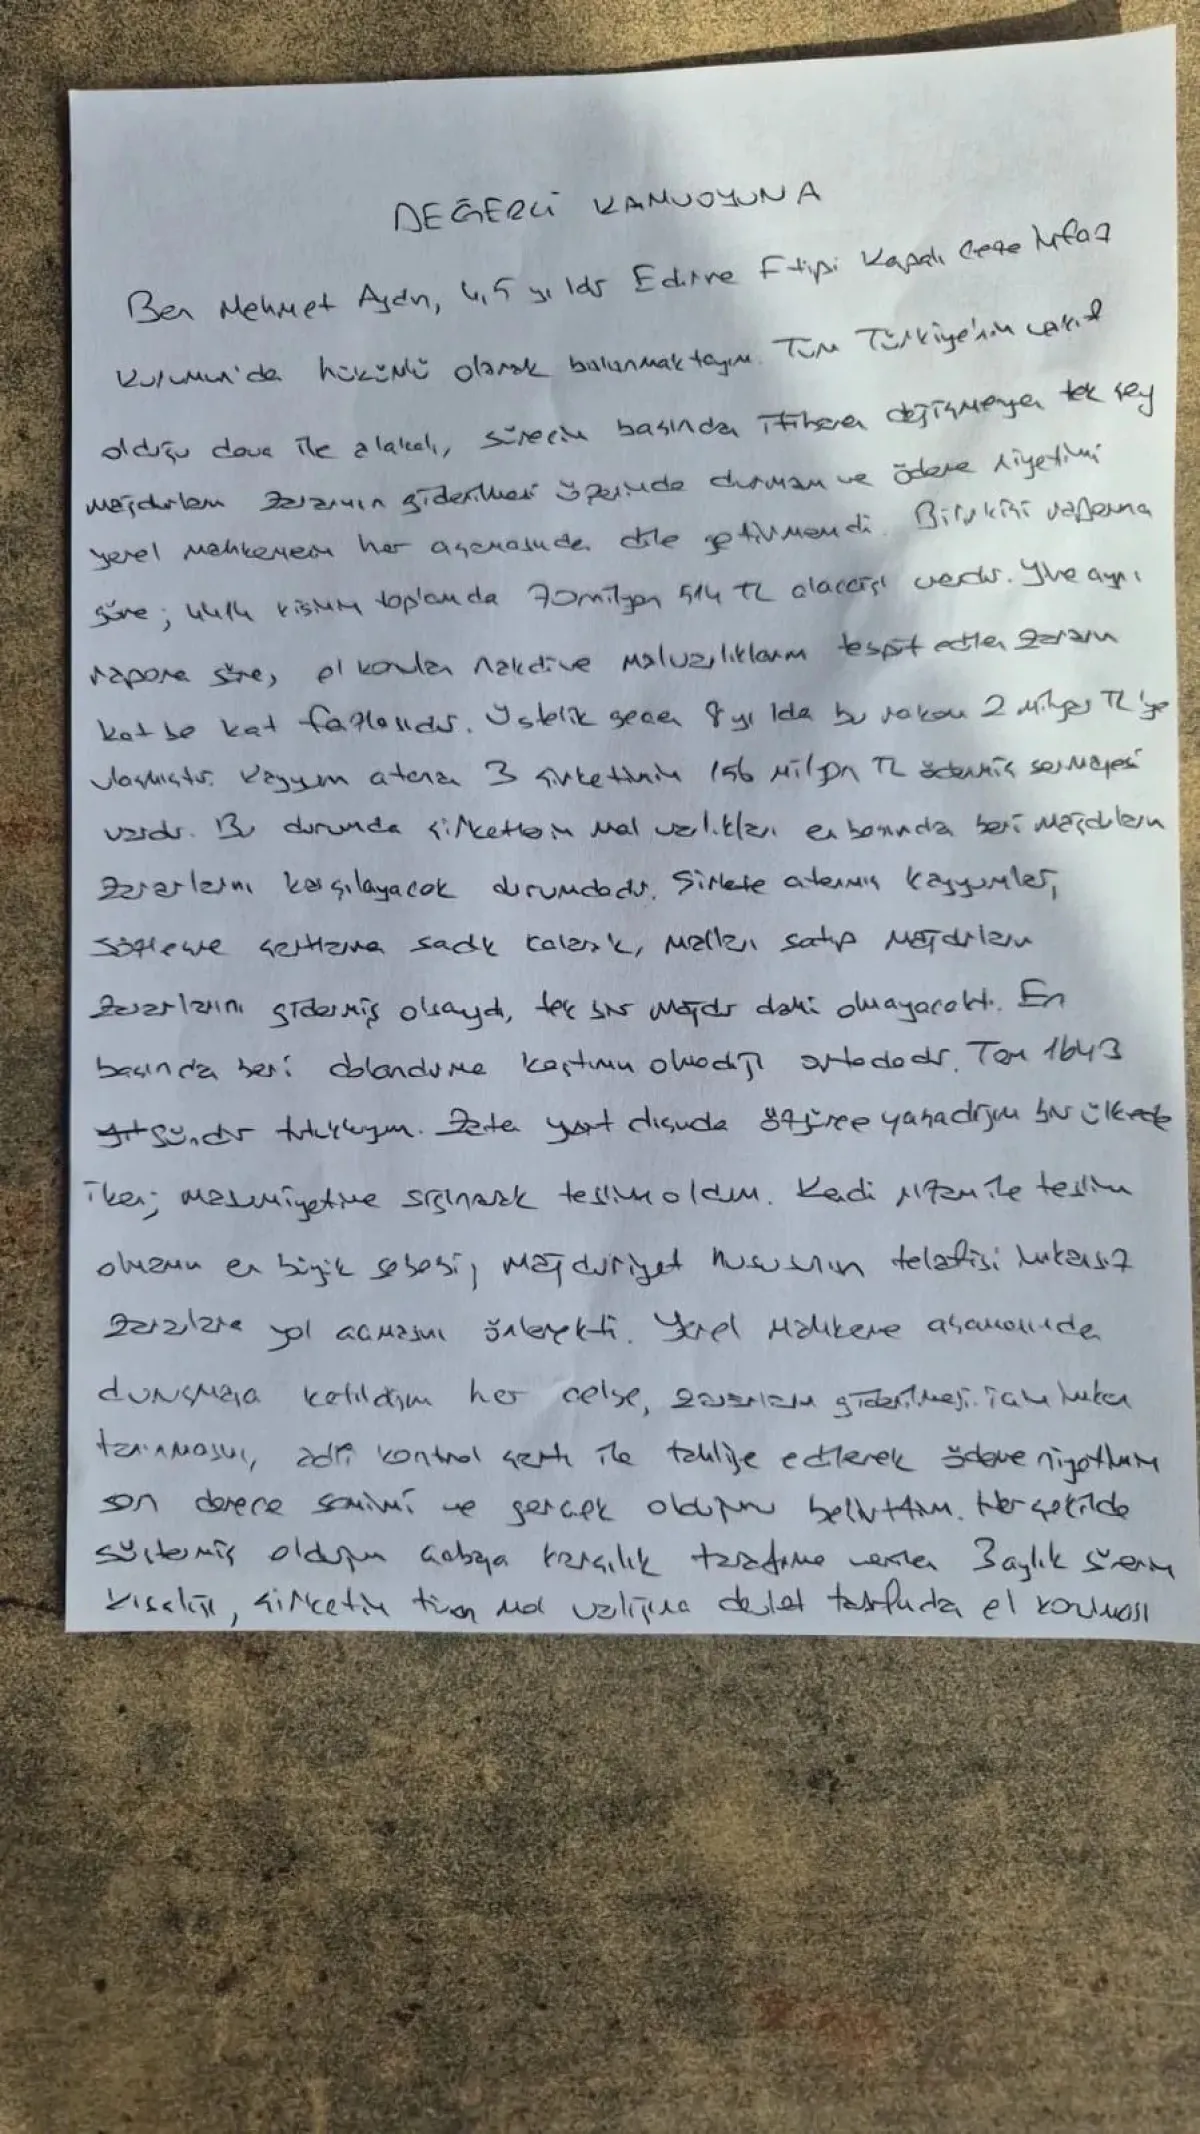 DEĞERLİ KAMUOYUNA
Ben Mehmet Aydın, 4,5 yıldır Edirne F tipi Kapalı Ceza İnfaz
Kurumun'da hükümlü olarak bulunmaktayım. Tüm Türkiye'nin vakıf
olduğu dava ile alakalı, sürecin başından itibaren değişmeyen tek şey
mağdurların zararının giderilmesi üzerinde durmam ve ödeme niyetimi
yerel mahkemenin her aşamasında dile getirmemdi. Bilirkişi raporuna
göre; 4414 kişinin toplamda 70 milyon 514 TL alacağı vardır. Yine aynı
rapora göre, el konulan nakdi ve malvarlıklarım tespit edilen zararın
kat be kat fazlasıdır. Üstelik geçen 8 yılda bu rakam 2 milyar TL'ye
ulaşmıştır. Kayyum atanan 3 şirketimin 156 milyon TL ödenmiş sermayesi
vardır. Bu durumda şirketlerin mal varlıkları en başından beri mağdurların
zararlarını karşılayacak durumdadır. Şirkete atanmış kayyumlar,
sözleşme şartlarına sadık kalarak, malları satıp mağdurların
zararlarını gidermiş olsaydı, tek bir mağdur dahi olmayacaktı. En
başından beri dolandırma kastımın olmadığı ortadadır. Tam 1643
gündür tutukluyum. Zaten yurt dışında özgürce yaşadığım bir ülkede
iken; masumiyetime sığınarak teslim oldum. Kendi rızam ile teslim
olmamın en büyük sebebi, mağduriyet hususunun telafisi imkansız
zararlara yol açmasını önlemekti. Yerel mahkeme aşamasında
duruşmaya katıldığım her celse, zararların giderilmesi için imkan
tanınmasını, adli kontrol şartı ile tahliye edilerek ödeme niyetimin
son derece samimi ve gerçek olduğunu belirttim. Her şekilde
göstermiş olduğum çabaya karşılık tarafıma verilen 3 aylık sürenin
kısalığı, şirketin tüm mal varlığına devlet tarafından el konulması